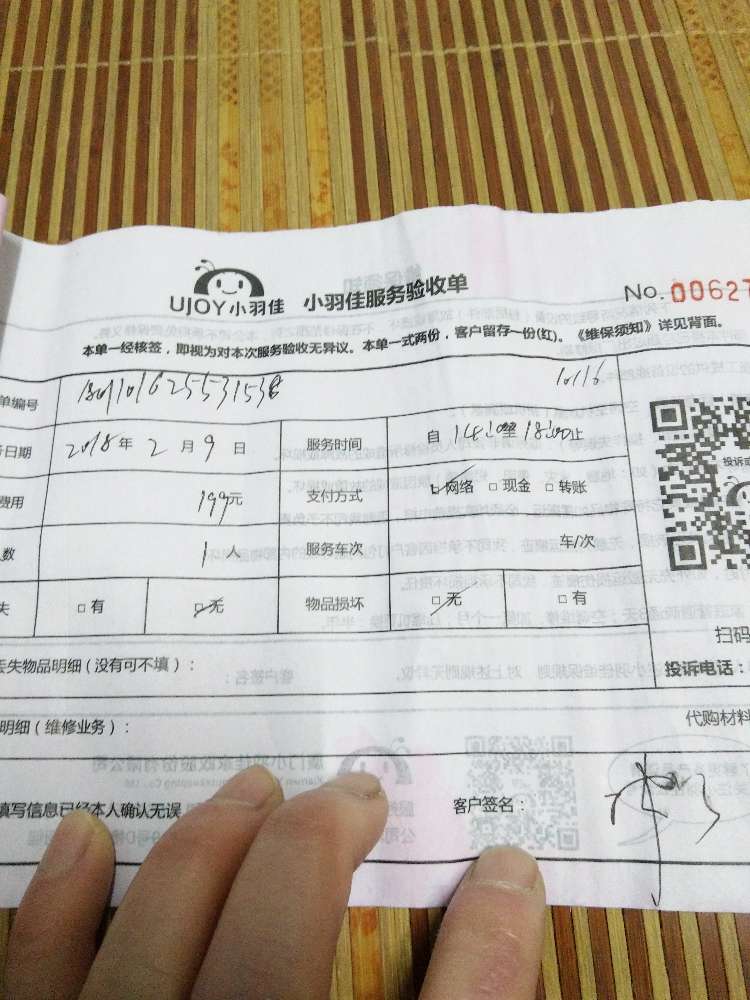 UJOY小羽佳 小羽佳服务验收单 No. 00627
本单一经核签，即视为对本次服务验收无异议。本单一式两份，客户留存一份(红)。《维保须知》详见背面。
单编号 10/16
日期 2018年2月9日 服务时间 自14:00至18:00止
费用 199元 支付方式 □网络 □现金 □转账
人数 1人 服务车次 车/次
失 □有 □无 物品损坏 □无 □有
丢失物品明细(没有可不填)：
扫码
投诉电话：
明细(维修业务)： 代购材料
填写信息已经本人确认无误 客户签名：